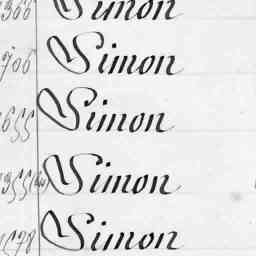 366 Simon
706 Simon
655 Simon
355 Simon
1578 Simon